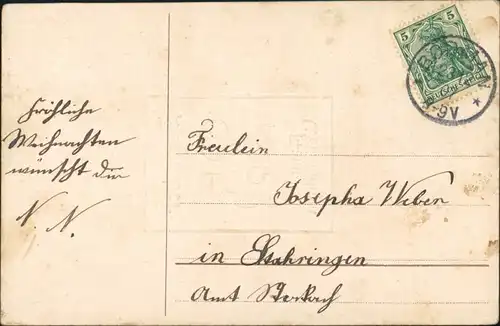 Fröhliche
Weihnachten
wünscht dir
N. N.
5
9V
Freulein
Josepha Weber
in Stahringen
Amt Stockach